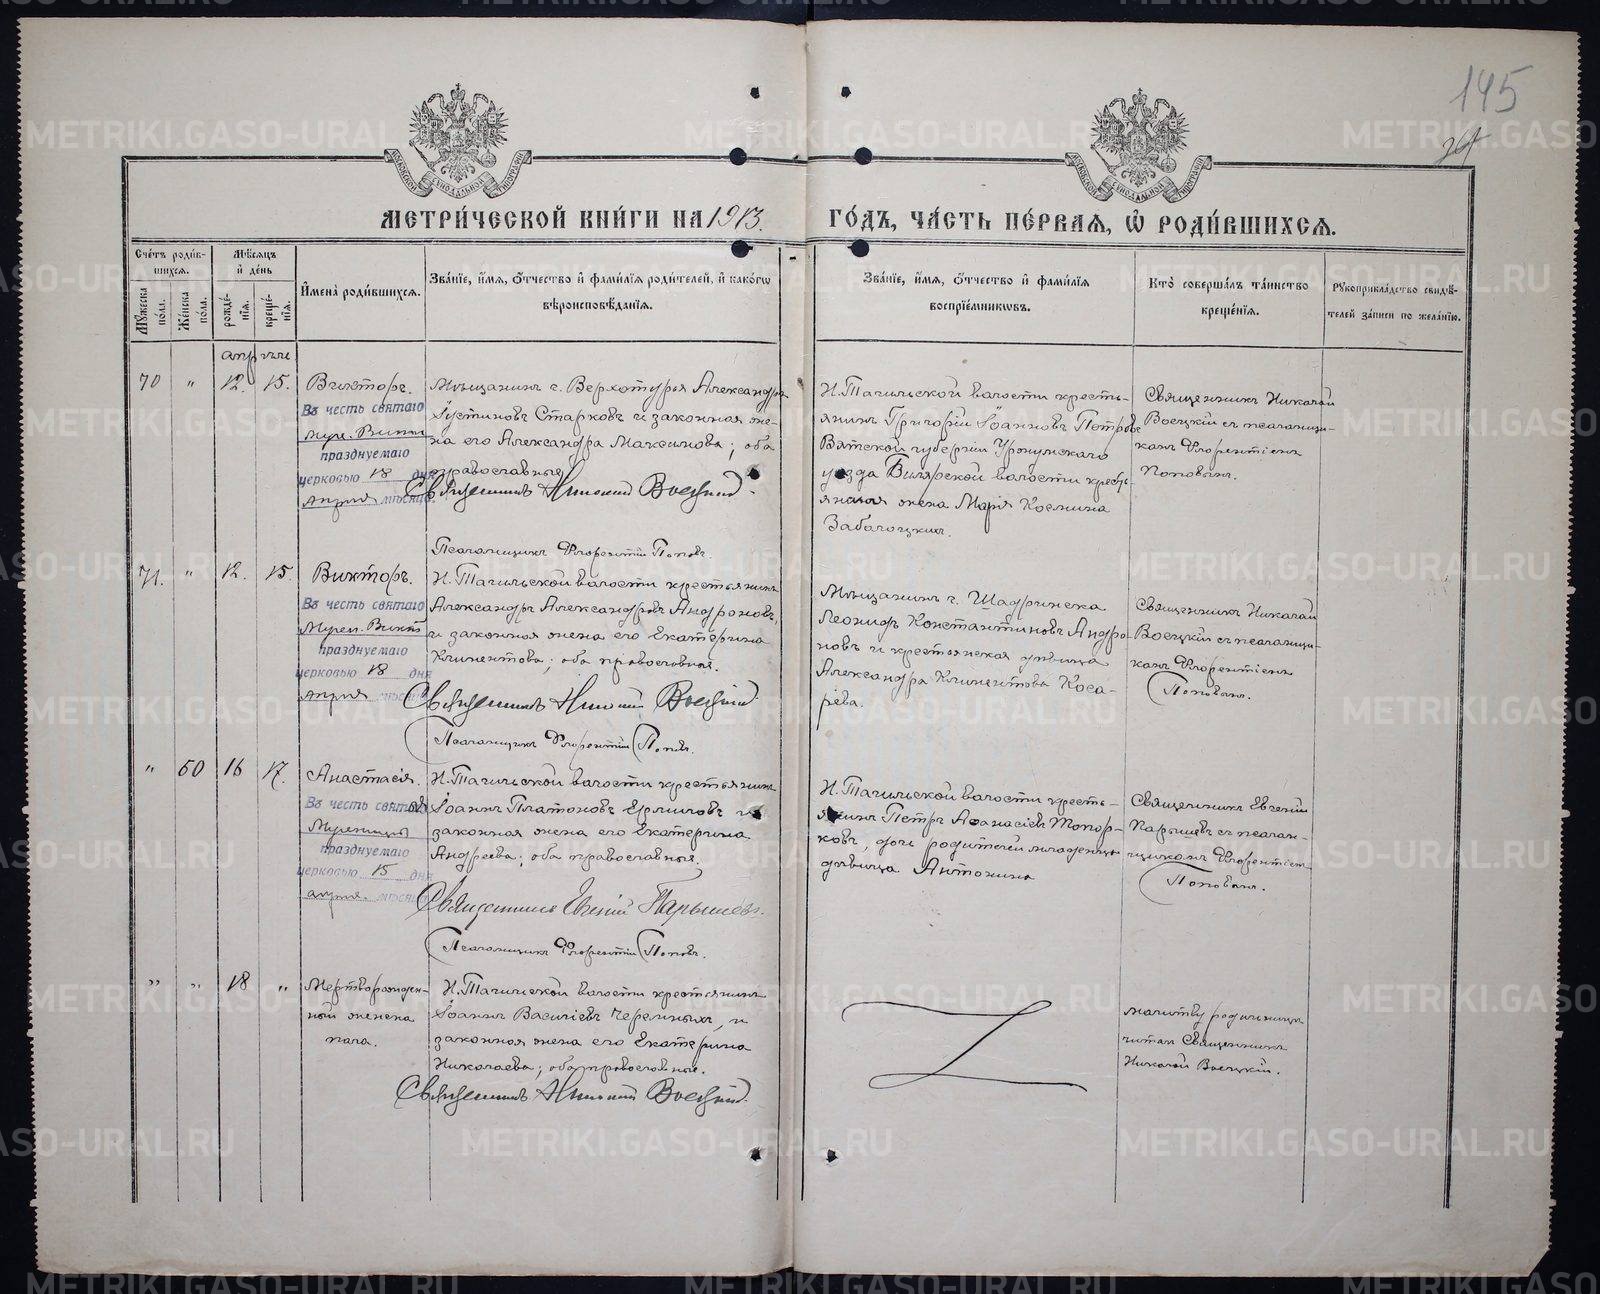 145
МОСКОВСКОЙ СѴНОДАЛЬНОЙ ТИПОГРАФІИ
МОСКОВСКОЙ СѴНОДАЛЬНОЙ ТИПОГРАФІИ
МЕТРИ́ЧЕСКОЙ КНИ́ГИ НА 1913.
ГО́ДЪ, ЧА́СТЬ ПЕ́РВАЯ, Ѽ РОДИ́ВШИХСЯ.
Сче́тъ роди́в-
шихся.
Мѣ́сяцъ
и҆ де́нь
Мꙋ́жеска
по́ла.
Же́нска
по́ла.
рожде́-
нїя.
креще́-
нїя.
И҆мена̀ роди́вшихся.
Зва́нїе, и҆́мя, ѻ҆́тчество и҆ фами́лїя роди́телей, и҆ како́гѡ
вѣроисповѣ́данїя.
Зва́нїе, и҆́мя, ѻ҆́тчество и҆ фами́лїя
воспрїе́мникѡвъ.
Кто̀ соверша́лъ та́инство
креще́нїя.
Рꙋкоприкла́дство свидѣ́-
телей за́писи по жела́нїю.
апрѣле
70 " 12. 15. Викторъ.
Въ честь святаго
муч. Викт
празднуемаго
церковью 18 дня
апреля мѣсяца.
Мѣщанинъ г. Верхотурья Александръ
Іустиновъ Старковъ и законная же-
на его Александра Максимова; оба
православные
Священникъ Николай Воецкий.
Псаломщикъ Флорентій Поповъ.
Н. Тагильской волости кресть-
янинъ Григорій Іоанновъ Петровъ
Вятской губерніи Уржумскаго
уѣзда Билярской волости кресть-
янская жена Марія Космина
Заболоцкихъ.
Священникъ Николай
Воецкій съ псаломщи-
комъ Флорентіемъ
Поповымъ.
71. " 12. 15. Викторъ.
Въ честь святаго
Мучен. Викт
празднуемаго
церковью 18 дня
апреля мѣсяца
Н. Тагильской волости крестьянинъ
Александръ Александровъ Андроновъ,
и законная жена его Екатерина
Климентова; оба православные.
Священникъ Николай Воецкий
Псаломщикъ Флорентій Поповъ.
Мѣщанинъ г. Шадринска
Леонидъ Константиновъ Андро-
новъ и крестьянская дѣвица
Александра Климентова Коса-
рева.
Священникъ Николай
Воецкій съ псаломщи-
комъ Флорентіемъ
Поповымъ.
" 60 16 17. Анастасія.
Въ честь святой
Мученицы
празднуемаго
церковью 15 дня
апреля. мѣсяца
Н. Тагильской волости крестьянинъ
Іоаннъ Платоновъ Ермиловъ и
законная жена его Екатерина
Андреева; оба православные.
Священникъ Евгеній Парышевъ.
Псаломщикъ Флорентій Поповъ.
Н. Тагильской волости кресть-
янинъ Петръ Аѳанасіевъ Топор-
ковъ, дочь родителей младенца
дѣвица Антонина
Священникъ Евгеній
Парышевъ съ псалом-
щикомъ Флорентіемъ
Поповымъ.
" " 18 " Мертворожден-
ный женска
пола.
Н. Тагильской волости крестьянинъ
Іоаннъ Василіевъ Черемныхъ, и
законная жена его Екатерина
Николаева; оба православные.
Священникъ Николай Воецкий.
молитву родильницѣ
читалъ Священникъ
Николай Воецкій.
METRIKI.GASO-URAL.RU